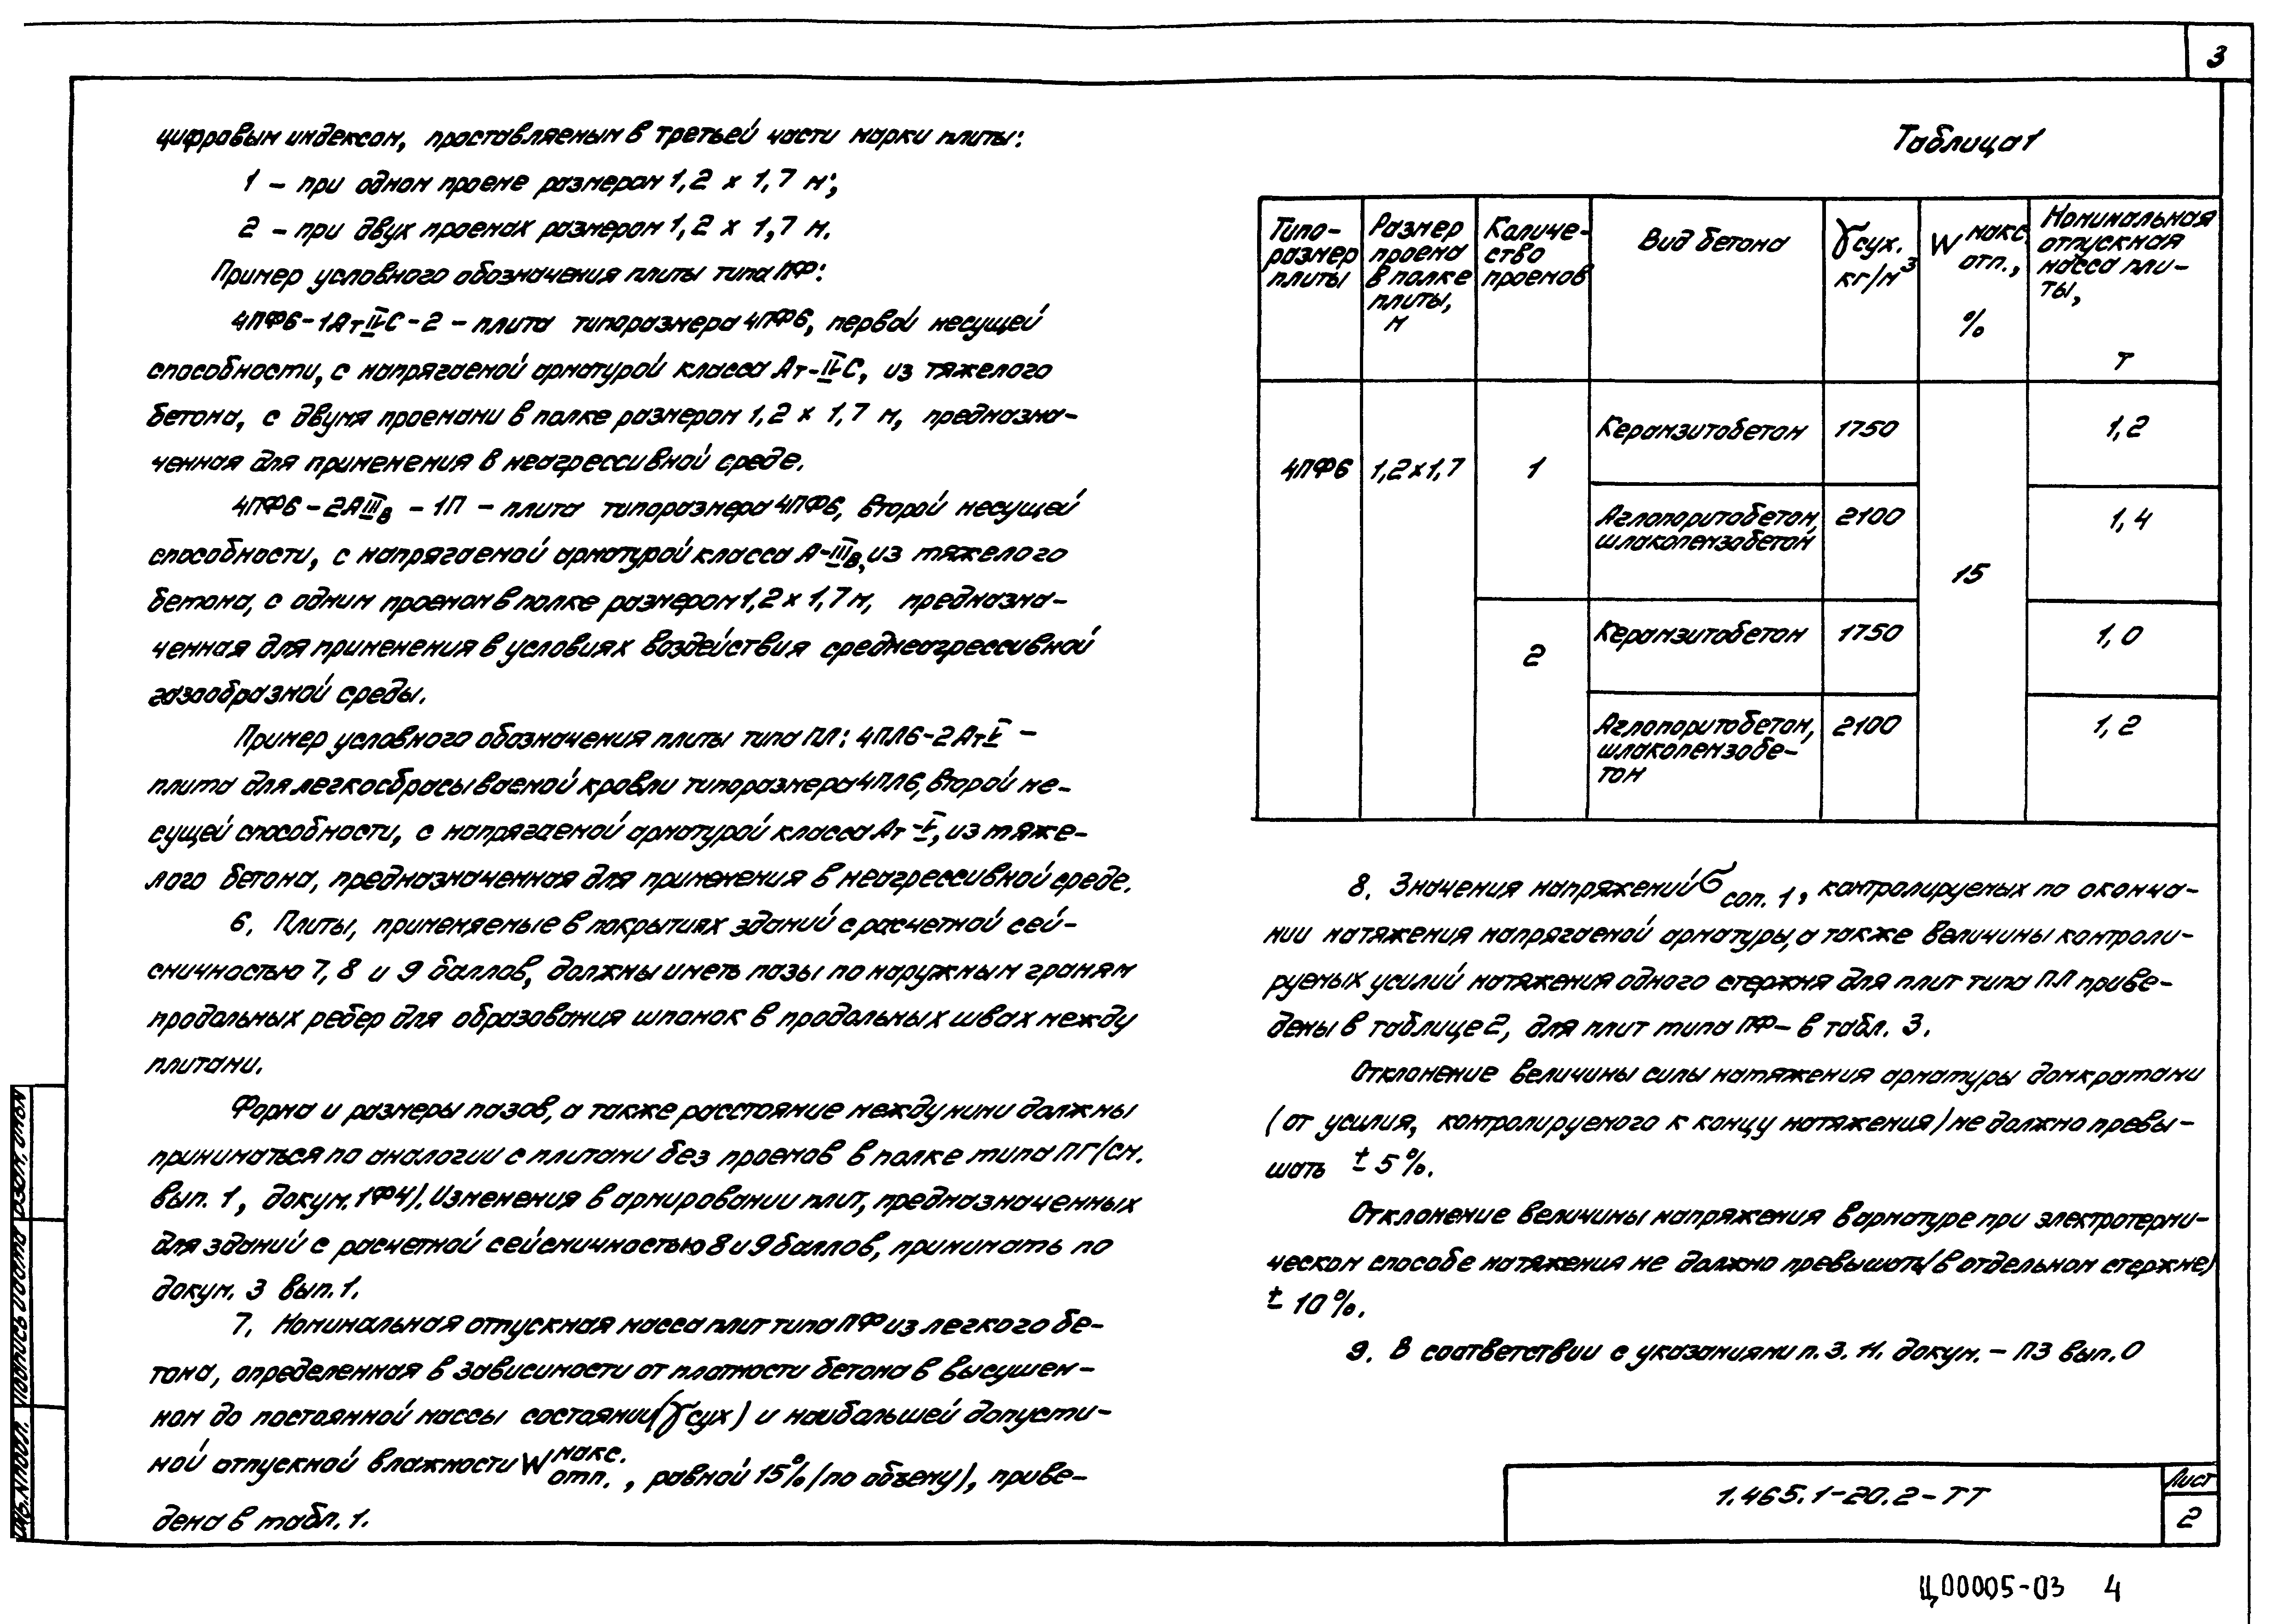 3
цифровым индексом, проставляемым в третьей части марки плиты:
1 – при одном проеме размером 1,2 х 1,7 м;
2 – при двух проемах размером 1,2 х 1,7 м.
Пример условного обозначения плиты типа ПФ:
4ПФ6-1АтIVС-2 – плита типоразмера 4ПФ6, первой несущей
способности, с напрягаемой арматурой класса Ат-IVС, из тяжелого
бетона, с двумя проемами в полке размером 1,2 х 1,7 м, предназна-
ченная для применения в неагрессивной среде.
4ПФ6-2АIIIв – 1П – плита типоразмера 4ПФ6, второй несущей
способности, с напрягаемой арматурой класса А-IIIв, из тяжелого
бетона, с одним проемом в полке размером 1,2 х 1,7 м, предназна-
ченная для применения в условиях воздействия среднеагрессивной
газообразной среды.
Пример условного обозначения плиты типа ПЛ: 4ПЛ6-2АтV –
плита для легкосбрасываемой кровли типоразмера 4ПЛ6, второй не-
сущей способности, с напрягаемой арматурой класса Ат-V, из тяже-
лого бетона, предназначенная для применения в неагрессивной среде.
6. Плиты, применяемые в покрытиях зданий с расчетной сей-
смичностью 7, 8 и 9 баллов, должны иметь пазы по наружным граням
продольных ребер для образования шпонок в продольных швах между
плитами.
Форма и размеры пазов, а также расстояние между ними должны
приниматься по аналогии с плитами без проемов в полке типа ПГ/см.
вып. 1, докум. 1Ф4). Изменения в армировании плит, предназначенных
для зданий с расчетной сейсмичностью 8 и 9 баллов, принимать по
докум. 3 вып. 1.
7. Номинальная отпускная масса плит типа ПФ из легкого бе-
тона, определенная в зависимости от плотности бетона в высушен-
ном до постоянной массы состоянии (γсух) и наибольшей допусти-
мой отпускной влажности W макс. отп., равной 15% (по объему), приве-
дена в табл. 1.
Таблица 1
Типо-размер плиты | Размер проема в полке плиты, м | Количе-ство проемов | Вид бетона | γсух. кг/м³ | W макс. отп., % | Номинальная отпускная масса пли-ты, т
4ПФ6 | 1,2х1,7 | 1 | Керамзитобетон | 1750 | 15 | 1,2
Аглопоритобетон, шлакопемзобетон | 2100 | 1,4
2 | Керамзитобетон | 1750 | 1,0
Аглопоритобетон, шлакопемзобе-тон | 2100 | 1,2
8. Значения напряжений σ соп. 1, контролируемых по оконча-
нии натяжения напрягаемой арматуры, а также величины контроли-
руемых усилий натяжения одного стержня для плит типа ПЛ приве-
дены в таблице 2, для плит типа ПФ – в табл. 3.
Отклонение величины силы натяжения арматуры домкратами
(от усилия, контролируемого к концу натяжения) не должно превы-
шать ± 5%.
Отклонение величины напряжения в арматуре при электротерми-
ческом способе натяжения не должно превышать (в отдельном стержне)
± 10%.
9. В соответствии с указаниями п. 3. 11. докум. – ПЗ вып. 0
1.465.1-20.2-ТТ
Лист
2
Инв.№подл. Подпись и дата Взам. инв.№
Ц00005-03 4